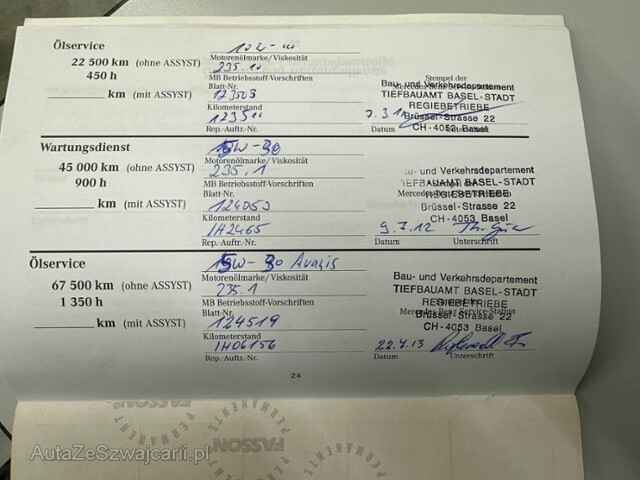 Ölservice
22 500 km (ohne ASSYST)
450 h
km (mit ASSYST)
Motorenölmarke/Viskosität
235.10
MB Betriebsstoff-Vorschriften
Blatt-Nr.
123503
Kilometerstand
Rep.-Auftr.-Nr.
Stempel der
Bau- und Verkehrsdepartement
TIEFBAUAMT BASEL-STADT
REGIEBETRIEBE
Brüssel-Strasse 22
CH-4053 Basel
Datum
Wartungsdienst
45 000 km (ohne ASSYST)
900 h
km (mit ASSYST)
5W-30
Motorenölmarke/Viskosität
235.1
MB Betriebsstoff-Vorschriften
Blatt-Nr.
124053
Kilometerstand
1H2465
Rep.-Auftr.-Nr.
Bau- und Verkehrsdepartement
TIEFBAUAMT BASEL-STADT
REGIEBETRIEBE
Brüssel-Strasse 22
CH-4053 Basel
9.7.12
Datum Unterschrift
Ölservice
67 500 km (ohne ASSYST)
1 350 h
km (mit ASSYST)
5W-30
Motorenölmarke/Viskosität
235.1
MB Betriebsstoff-Vorschriften
Blatt-Nr.
124519
Kilometerstand
1H06156
Rep.-Auftr.-Nr.
Bau- und Verkehrsdepartement
TIEFBAUAMT BASEL-STADT
REGIEBETRIEBE
Brüssel-Strasse 22
CH-4053 Basel
22.4.13
Datum Unterschrift
24
PERMANENTE
FASSON
AutaZeSzwajcarii.pl